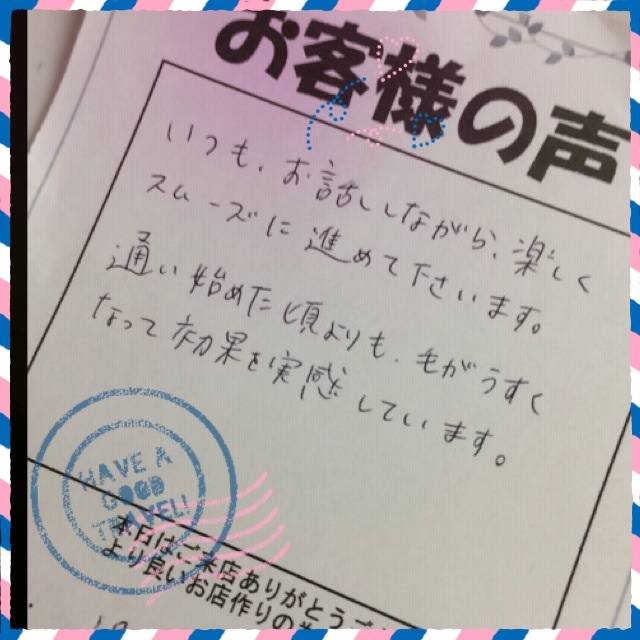 お客様の声
いつも、お話ししながら、楽しく
スムーズに進めて下さいます。
通い始めた頃よりも、毛がうすく
なって効果を実感しています。
HAVE A
GOOD
TRAVEL!!
本日はご来店ありがとうご
より良いお店作りの